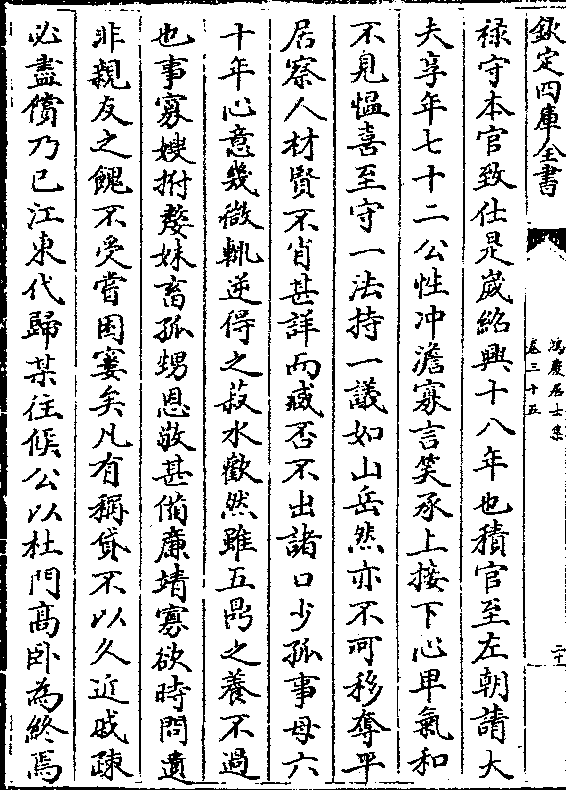 欽定四庫全書
鴻慶居士集
卷三十五
二十
祿守本官致仕是歲紹興十八年也積官至左朝請大
夫享年七十二公性冲澹寡言笑承上接下心卑氣和
不見慍喜至守一法持一議如山岳然亦不可移奪平
居察人材賢不肖甚詳而臧否不出諸口少孤事母六
十年心意幾微輒逆得之菽水歡然雖五鼎之養不過
也事寡嫂拊嫠妹畜孤甥恩敬甚備廉靖寡欲時問遺
非親友之餽不受嘗困寠矣凡有稱貸不以久近戚疎
必盡償乃已江東代歸某往候公以杜門髙卧為終焉